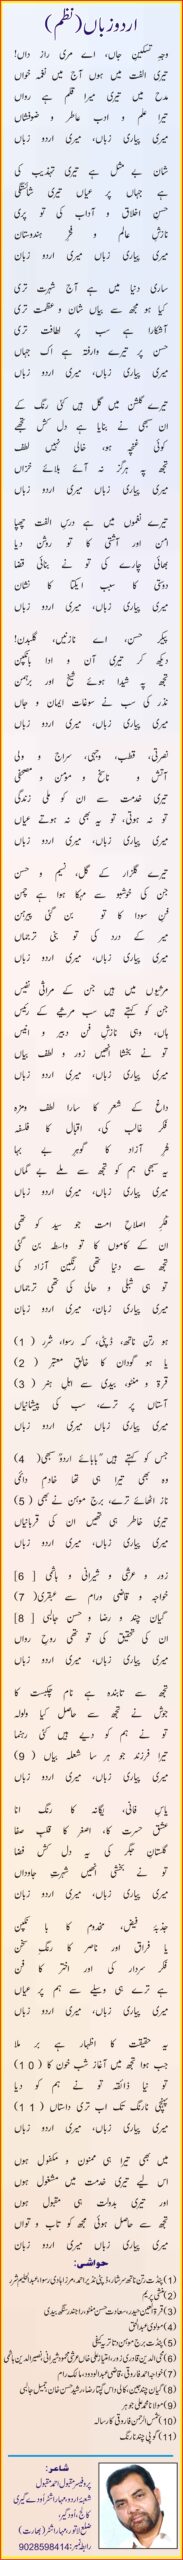 اردو زباں (نظم)
وجہِ تسکینِ جاں، اے مری راز داں!
تیری الفت میں ہوں آج میں نغمہ خواں
مدح میں تیری میرا قلم ہے رواں
تیرا علم و ادب عاطر و ضوفشاں
میری پیاری زباں، میری اردو زباں
شان بے مثل ہے تیری تہذیب کی
ہے جہاں پر عیاں تیری شائستگی
حسنِ اخلاق و آداب کی تو پری
نازشِ عالم و فخرِ ہندوستاں
میری پیاری زباں میری اردو زباں
ساری دنیا میں ہے آج شہرت تری
کیا ہو مجھ سے بیاں شان و عظمت تری
آشکارا ہے سب پر لطافت تری
حسن پر تیرے وارفتہ ہے اک جہاں
میری پیاری زباں، میری اردو زباں
تیرے گلشن میں گل ہیں کئی رنگ کے
ان سبھی نے بنایا ہے دل کش تجھے
کوئی غنچہ ہو، خالی نہیں لطف سے
تجھ پہ ہرگز نہ آئے بلائے خزاں
میری پیاری زباں، میری اردو زباں
تیرے نغموں میں ہے درسِ الفت چھپا
امن اور آشتی کا تو روشن دیا
بھائی چارے کی تو نے بنائی فضا
دوستی کا سبب ایکتا کا نشاں
میری پیاری زباں، میری اردو زباں
پیکرِ حسن، اے نازنیں، گلبدن!
دیکھ کر تیری آن و ادا بانکپن
تجھ پہ شیدا ہوئے شیخ اور برہمن
نذر کی سب نے سوغاتِ ایمان و جاں
میری پیاری زباں، میری اردو زباں
نصرتی، قطب، وجہی، سراج و ولی
آتش و ناسخ و مومن و مصحفی
تیری خدمت سے ان کو ملی زندگی
تو نہ ہوتی، تو یہ بھی نہ ہوتے عیاں
میری پیاری زباں، میری اردو زباں
تیرے گلزار کے گل، نسیم و حسن
جن کی خوشبو سے مہکا ہوا ہے چمن
فنِ سودا کا تو بن گئی پیرہن
میر کے درد کی تو بنی ترجماں
میری پیاری زباں، میری اردو زباں
مرثیوں میں ہیں جن کے مراثی نفیس
جن کو کہتے ہیں سب مرثیے کے رئیس
ہاں، وہی نازشِ فن دبیر و انیس
تو نے بخشا انھیں زور و لطفِ بیاں
میری پیاری زباں، میری اردو زباں
داغ کے شعر کا سارا لطف ومزہ
فکر غالب کی، اقبال کا فلسفہ
فکرِ آزاد کا گوہرِ بے بہا
یہ سبھی ہم کو تجھ سے ملے بے گماں
میری پیاری زباں، میری اردو زباں
فکرِ اصلاحِ امت جو سید کو تھی
ان کے کاموں کا تو واسطہ بن گئی
تجھ سے دنیا تھی رنگین آزاد کی
تو ہی شبلی و حالی کی تھی ترجماں
میری پیاری زباں، میری اردو زباں
ہو رتن ناتھ، ڈپٹی، کہ رسوا، شرر (1)
یا ہو گودان کا خالقِ معتبر (2)
قرۃ و منٹو، بیدی سے اہلِ ہنر (3)
آستاں پر ترے، سب کی پیشانیاں
میری پیاری زباں، میری اردو زباں
جس کو کہتے ہیں "بابائے اردو" سبھی (4)
وہ بھی تیرا ہی تھا خادمِ دائمی
ناز اٹھائے ترے، برج موہن نے بھی (5)
تیری خاطر ہی تھیں ان کی قربانیاں
میری پیاری زباں، میری اردو زباں
زور و عرشی و شیرانی و ہاشمی [6]
خواجہ و قاضی ورام سے عبقری (7)
گیان چند و رضا و حسن جالبی [8]
ان کی تحقیق کی تو تھی روحِ رواں
میری پیاری زباں، میری اردو زباں
تجھ سے تابندہ ہے نام چکبست کا
جوش نے تجھ سے حاصل کیا ولولہ
تو نے ہم کو دیے ہیں کئی رہنما
تیرا فرزند جو ہر سا شعلہ بیاں (9)
میری پیاری زباں، میری اردو زباں
یاسِ فانی، یگانہ کا رنگِ انا
عشق حسرت کا، اصغر کا قلبِ صفا
گلستانِ جگر کی یہ دل کش فضا
تو نے بخشی انھیں شہرتِ جاوداں
میری پیاری زباں، میری اردو زباں
جذبۂ فیض، مخدوم کا بانکپن
یا فراق اور ناصر کا رنگِ سخن
فکر سردار کی اور اختر کا فن
ہے ترے ہی وسیلے سے ہم پر عیاں
میری پیاری زباں، میری اردو زباں
یہ حقیقت کا اظہار ہے بر ملا
جب ہوا تجھ میں آغاز شب خون کا (10)
تو نیا ذائقہ تو نے ہم کو دیا
پہنچی نارنگ تک اب تری داستاں (11)
میری پیاری زباں، میری اردو زباں
میں بھی تیرا ہی ممنون و مکفول ہوں
اس لیے تیری خدمت میں مشغول ہوں
اور تیری بدولت ہی مقبول ہوں
تجھ سے حاصل ہوئی مجھ کو تاب و تواں
میری پیاری زباں، میری اردو زباں
حواشی:
(1) پنڈت رتن ناتھ سرشار، ڈپٹی نذیر احمد، مرزا ہادی رسوا، عبدالحلیم شرر
(2) منشی پریم
(3) قرۃ العین حیدر، سعادت حسن منٹو، راجندر سنگھ بیدی
(4) مولوی عبدالحق
(5) پنڈت برج موہن دتاتریہ کیفی
(6) محی الدین قادری زور، امتیاز علی خاں عرشی، محمود شیرانی، نصیرالدین ہاشمی
(7) خواجہ احمد فاروقی، قاضی عبدالودود، مالک رام
(8) گیان چند جین، کالی داس گپتا رضا، رشید حسن خان، جمیل جالبی
(9) مولانا محمد علی جوہر
(10) شمس الرحمن فاروقی کا رسالہ
(11) گوپی چند نارنگ
شاعر:
پروفیسر مقبول احمد مقبول
شعبۂ اردو، مہاراشٹر اُدے گیری
کالج، اُدگیر،
ضلع لاتور، مہاراشٹر (بھارت)
رابطہ نمبر: 9028598414